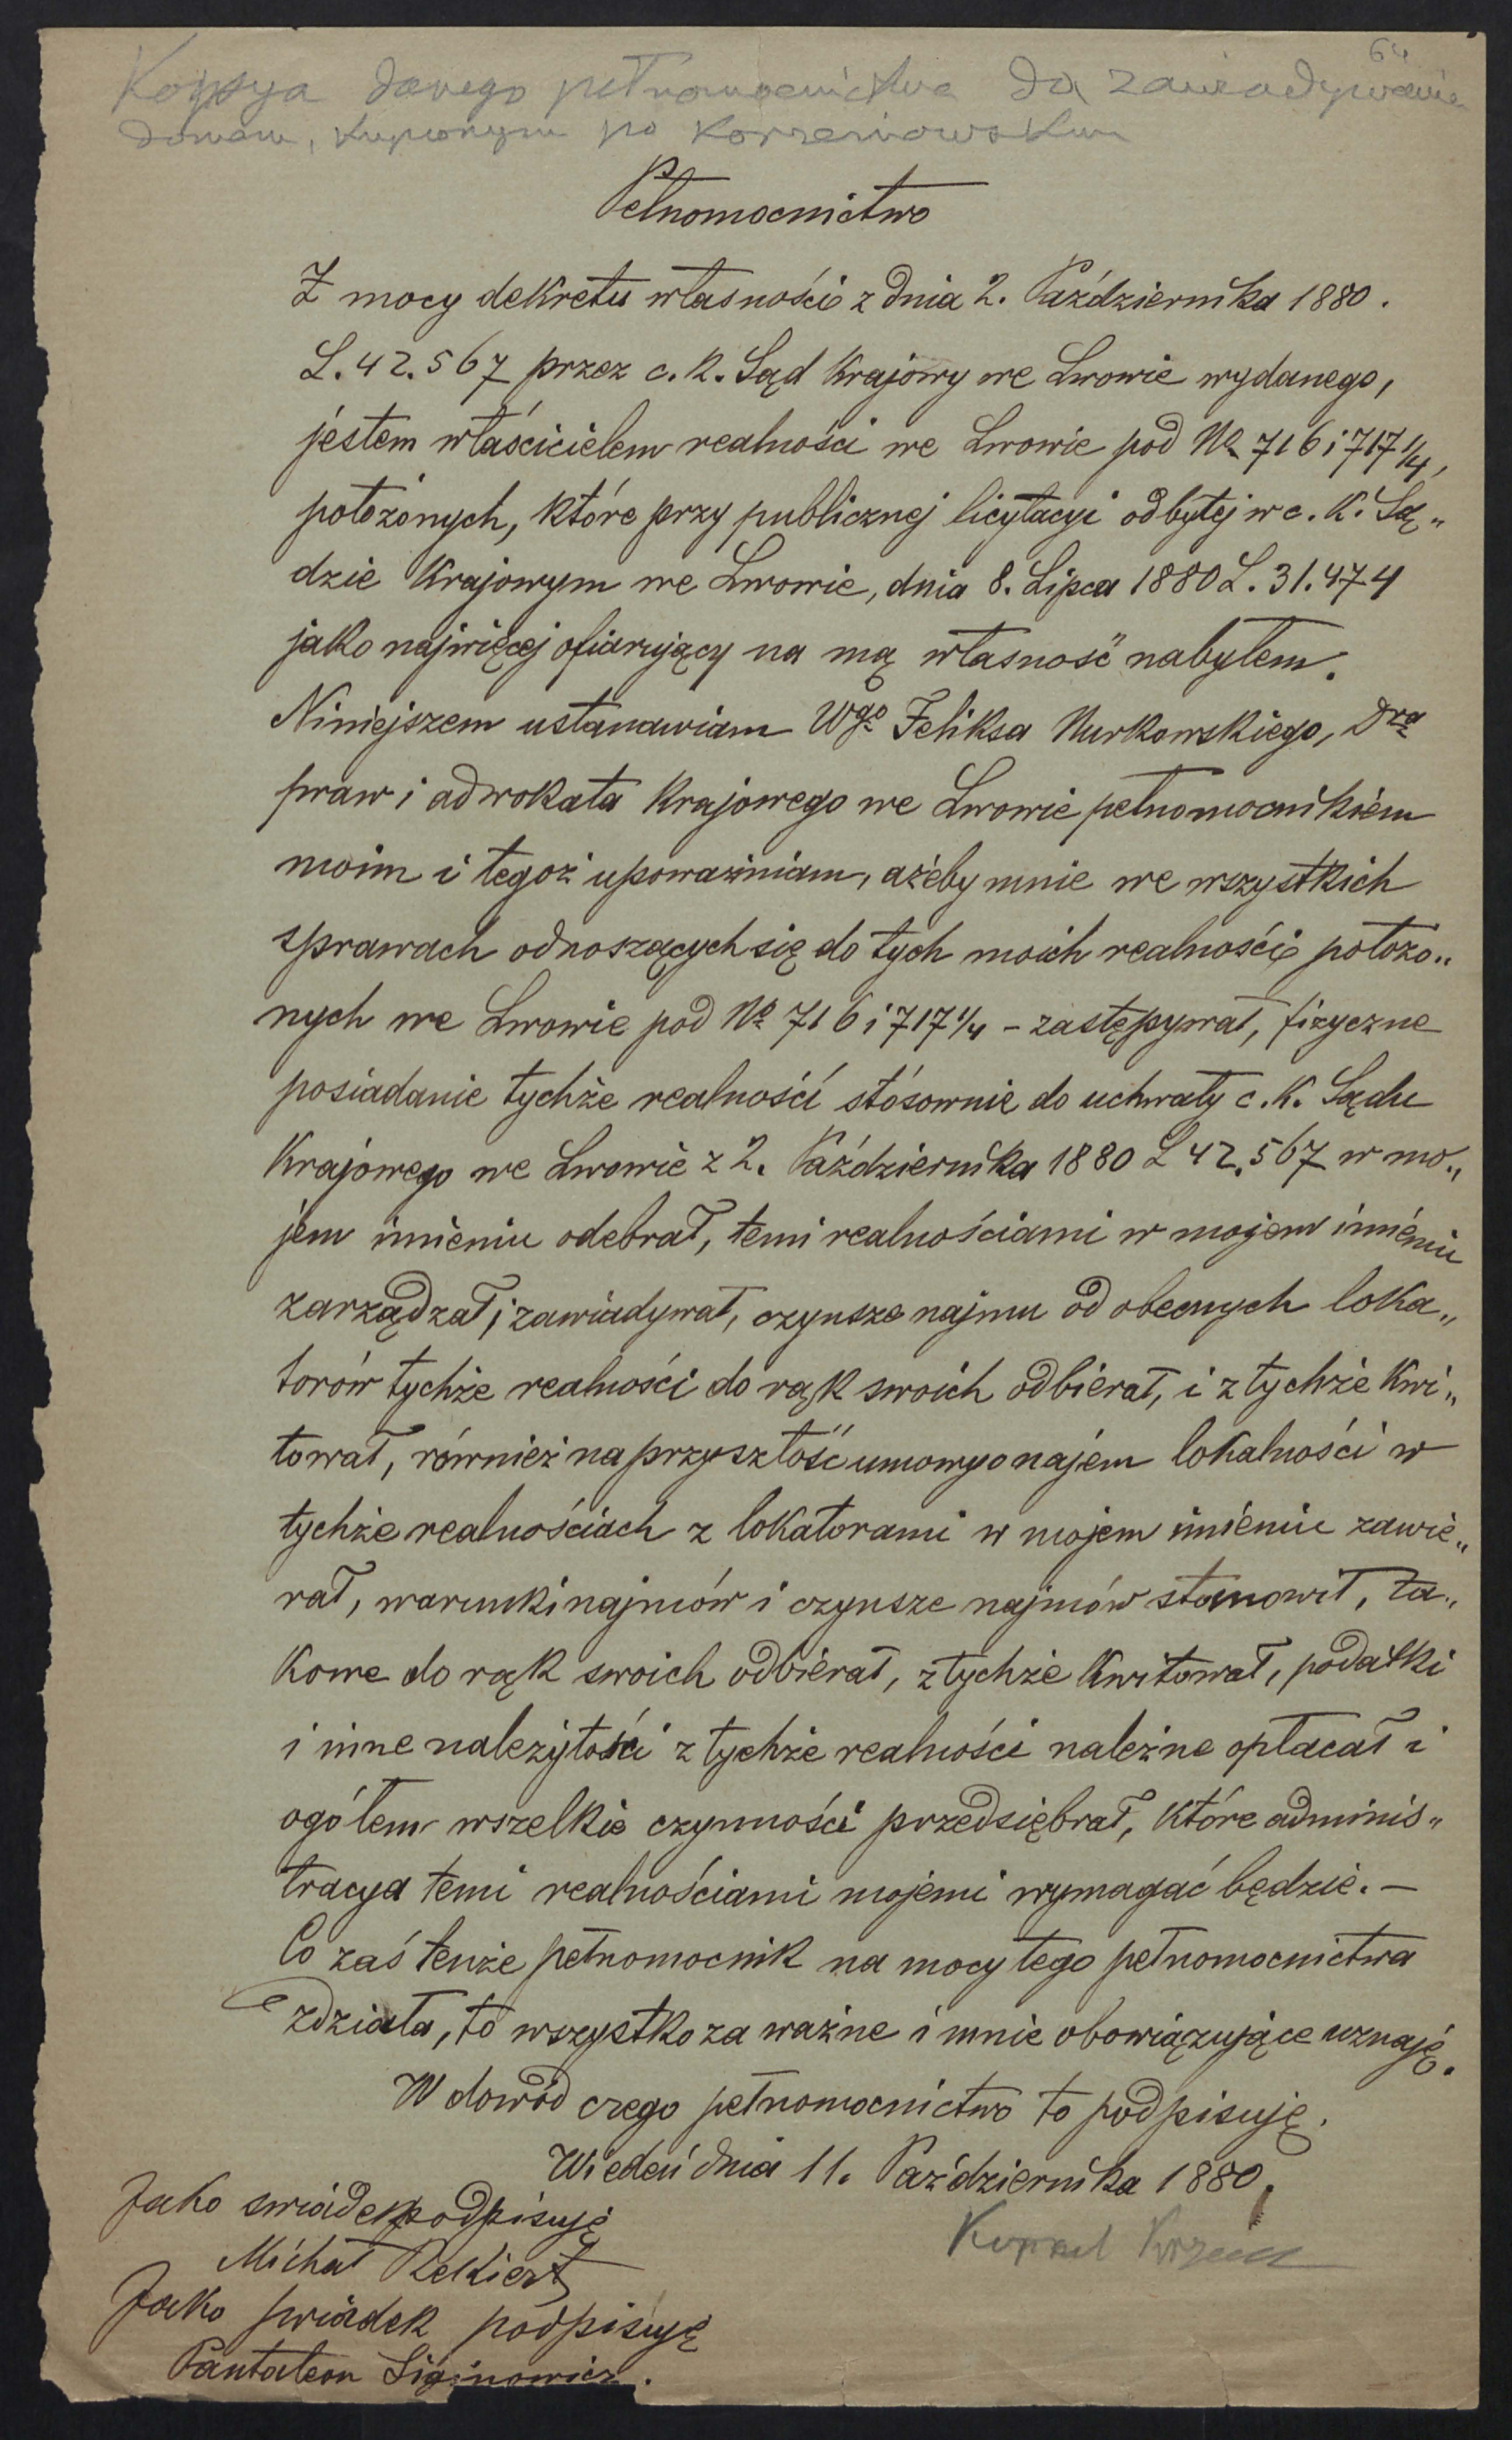 64
Kopya danego pełnomocnictwa do zawiadywania
domem, kupionym po Korzeniowskim
Pełnomocnictwo
Z mocy dekretu własności z dnia 2. Października 1880.
L. 42.567 przez c. k. Sąd Krajowy we Lwowie wydanego,
jestem właścicielem realności we Lwowie pod No 716 i 717 1/4,
położonych, które przy publicznej licytacyi odbytej w c. K. Są„
dzie Krajowym we Lwowie, dnia 8. Lipca 1880 L. 31.474
jako najwięcej ofiarujący na mą własność nabyłem.
Niniejszem ustanawiam Wgo Feliksa Nurkowskiego, Dra
praw i adwokata Krajowego we Lwowie pełnomocnikiem
moim i tegoż upoważniam, ażeby mnie we wszystkich
sprawach odnoszących się do tych moich realności położo„
nych we Lwowie pod No 716 i 717 1/4 – zastępywał, fizyczne
posiadanie tychże realności stósownie do uchwały c. K. Sądu
Krajowego we Lwowie z 2. Października 1880 L 42.567 w mo„
jem imieniu odebrał, temi realnościami w mojem imieniu
zarządzał i zawiadywał, czynsze najmu od obecnych loka„
torów tychże realności do rąk swoich odbierał, i z tychże Kwi„
tował, również na przyszłość umowy o najem lokalności w
tychże realnościach z lokatorami w mojem imieniu zawie„
rał, warunki najmów i czynsze najmów stanowił, ta„
kowe do rąk swoich odbierał, z tychże Kwitował, podatki
i inne należytości z tychże realności należne opłacał i
ogółem wszelkie czynności przedsiębrał, które adminis„
tracya temi realnościami mojemi wymagać będzie. –
Co zaś tenże pełnomocnik na mocy tego pełnomocnictwa
zdziała, to wszystko za ważne i mnie obowiązujące uznaję.
W dowód czego pełnomocnictwo to podpisuję.
Wiedeń dnia 11. Października 1880.
Jako swiadek podpisuję
Michał Rekiert
Jako swiadek podpisuję
Pantaleon